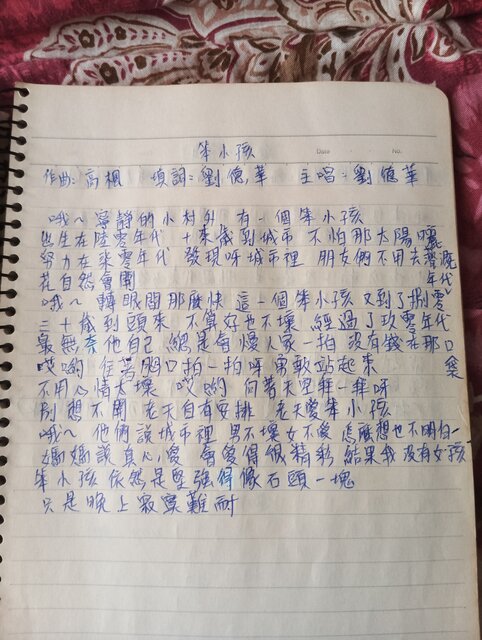 笨小孩
Date No.
作曲:高楓 填詞:劉德華 主唱:劉德華
哦~寧靜的小村外 有一個笨小孩
出生在陸零年代 十來歲到城市 不怕那太陽曬
努力在柒零年代 發現呀城市裡 朋友們不用去灌溉
花自然會開
哦~轉眼間那麼快 這一個笨小孩 又到了捌零年代
三十歲到頭來 不算好也不壞 經過了玖零年代
最無奈他自己 總是會慢人家一拍 沒有錢在那口袋
哎喲 往著胸口拍一拍呀 勇敢站起來
不用心情太壞 哎喲 向著天空拜一拜呀
別想不開 老天自有安排 老天愛笨小孩
哦~他們說城市裡 男不壞女不愛 怎麼想也不明白
媽媽說真心愛 會愛得很精彩 結果我沒有女孩
笨小孩依然是堅強得像石頭一塊
只是晚上寂寞難耐